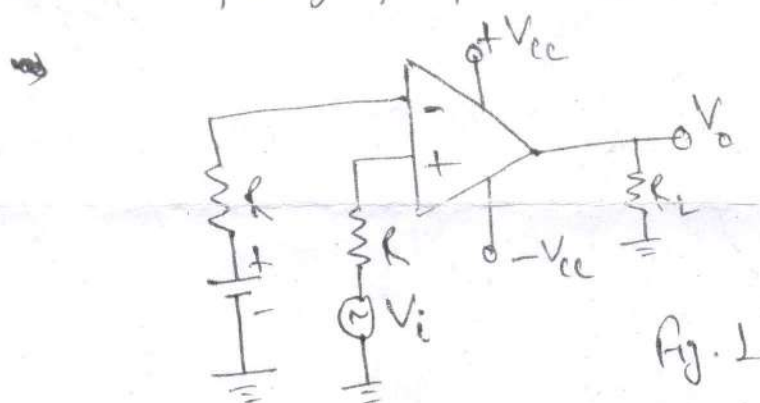 + Vcc
-
Vo
+
R
RL
R
+
- Vcc
-
Vi
Fig. 1